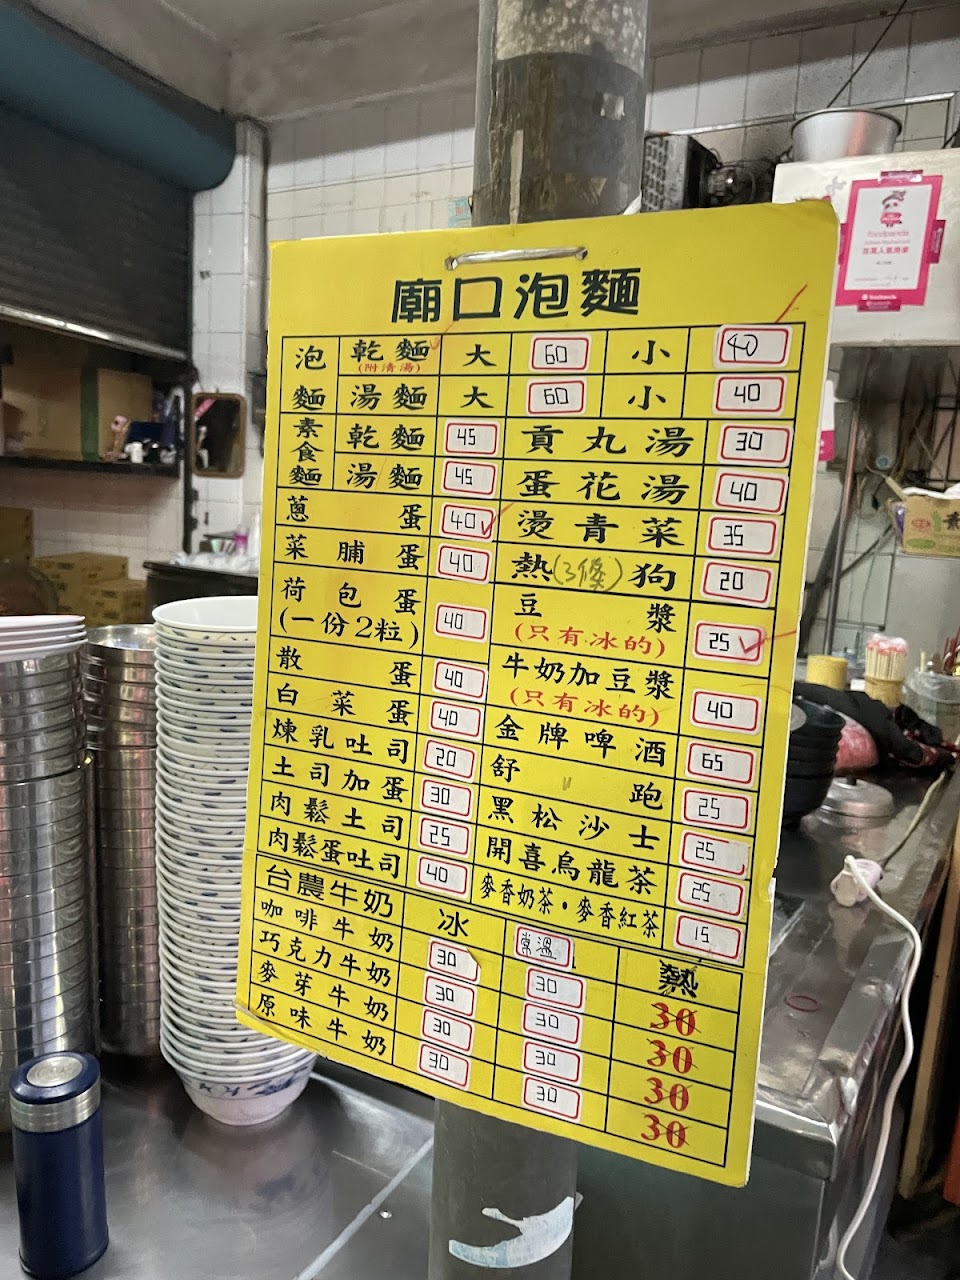 廟口泡麵
泡麵 乾麵 (附清湯) 大 60 小 40
湯麵 大 60 小 40
素食麵 乾麵 45 貢丸湯 30
湯麵 45 蛋花湯 40
蔥蛋 40 燙青菜 35
菜脯蛋 40 熱(3條)狗 20
荷包蛋 (一份2粒) 40 豆漿 (只有冰的) 25
散蛋 40 牛奶加豆漿 (只有冰的) 40
白菜蛋 40 金牌啤酒 65
煉乳吐司 20 舒跑 25
土司加蛋 30 黑松沙士 25
肉鬆土司 25 開喜烏龍茶 25
肉鬆蛋吐司 40 麥香奶茶・麥香紅茶 15
台農牛奶 冰 常溫 熱
咖啡牛奶 30 30 30
巧克力牛奶 30 30 30
麥芽牛奶 30 30 30
原味牛奶 30 30 30
foodpanda